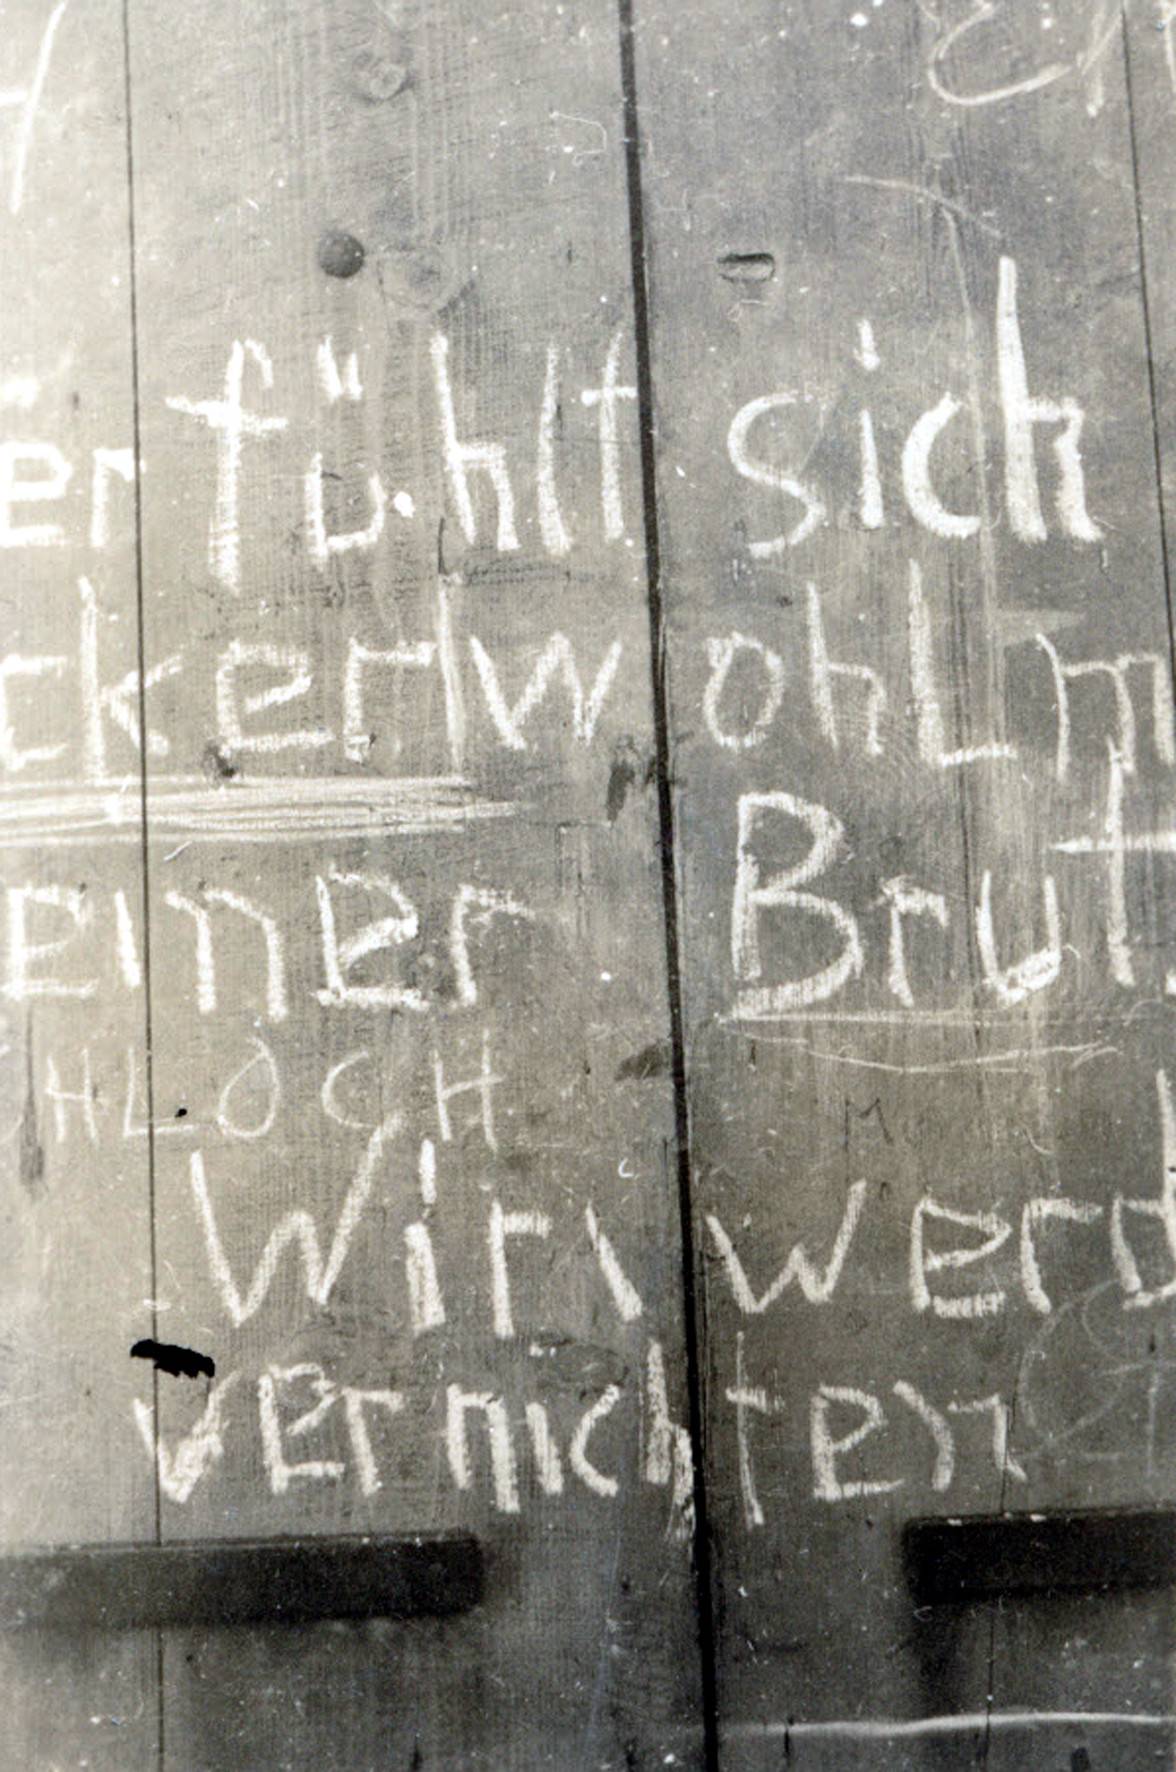 er fühlt sich
ckerlwohl m
einer Brut
HLOCH
Wir werd
vernichten